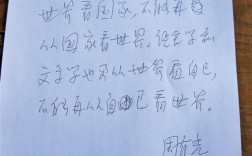 世界看国家，不能再从
从国家看世界。语言学和
文字学也要从世界看自己，
不能再从自己看世界。
周有光